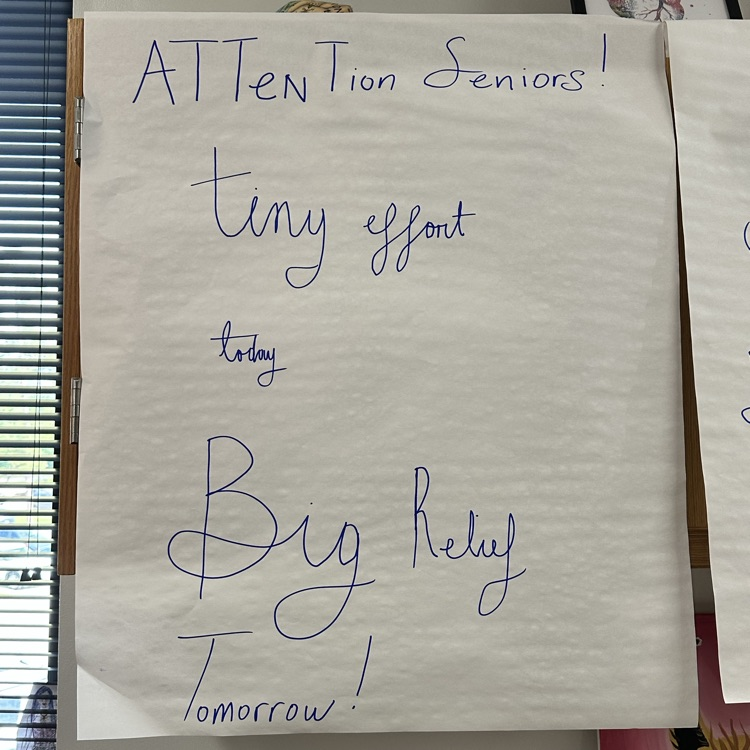 ATTenTion Seniors!
tiny effort
today
Big Relief
Tomorrow!